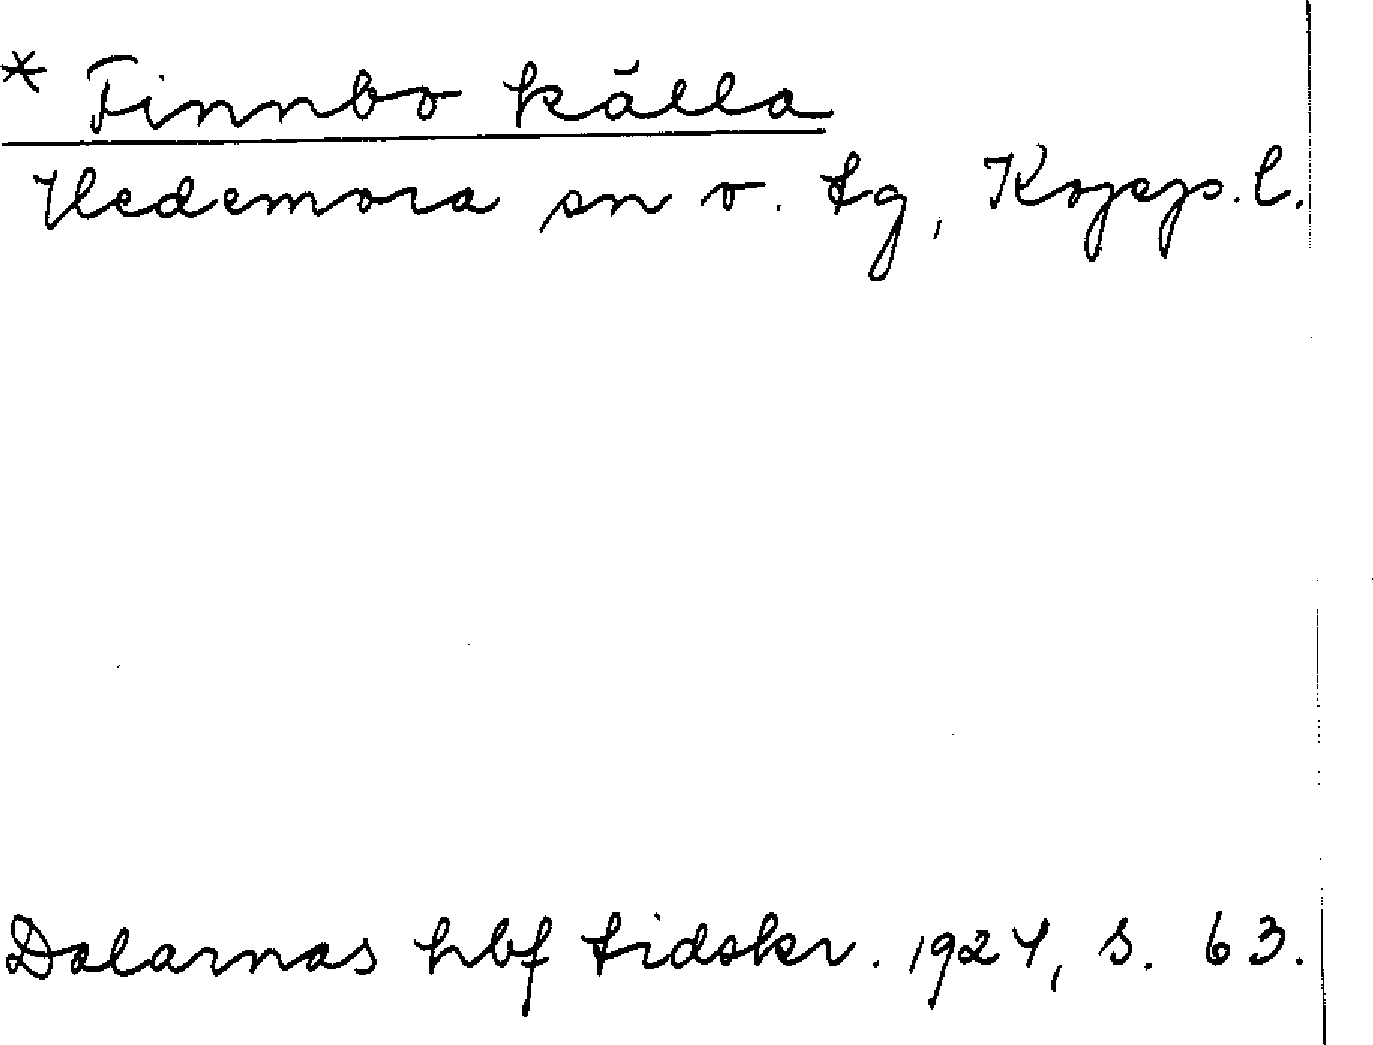 * Finnbo källa
Hedemora sn o. tg, Kopp. l.
Dalarnas hbf tidskr. 1924, s. 63.